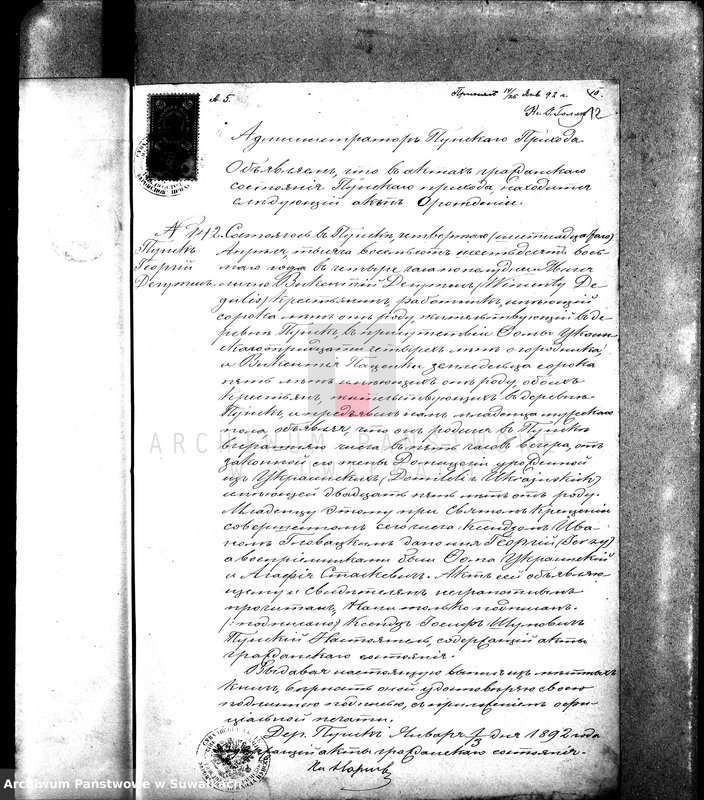 А. 5.
Принято 14/26 Янв 92 г.
12
Администраторъ Пунскаго Прихода
Объявляетъ, что въ актахъ гражданскаго
состоянія Пунскаго прихода находится
слѣдующій актъ о рожденіи:
№ 42.
Пунскъ
Георгій
Дегутисъ.
Состоялось въ Пунскѣ, четвертаго (шестнадцатаго)
Апрѣля, тысяча восемьсотъ шестьдесятъ вось-
маго года въ четыре часа пополудни. Явился
лично Викентій Дегутисъ (Wincenty De-
gutis) крестьянинъ, работникъ, имѣющій
сорока лѣтъ отъ роду, жительствующій въ де-
ревнѣ Пунскъ, въ присутствіи Ѳомы Украин-
скаго тридцати четырехъ лѣтъ огородника
и Викентія Паценки земледѣльца сорока
пять лѣтъ имѣющихъ отъ роду, обоихъ
крестьянъ, жительствующихъ въ деревнѣ
Пунскъ, и предъявилъ намъ младенца мужескаго
пола, объявляя, что онъ родился въ Пунскѣ
вчерашняго числа въ пять часовъ вечера, отъ
законной его жены Домицели урожденной
изъ Украинскихъ (Domiceli z Ukrajnskich)
имѣющей двадцать пять лѣтъ отъ роду.
Младенцу этому при Святомъ Крещеніи
совершенномъ сего числа Ксендзомъ Ива-
номъ Гловацкимъ дано имя Георгій (Jerzy)
а воспріемниками были Ѳома Украинскій
и Агафія Стаскевичъ. Актъ сей объявляю-
щему и свидѣтелямъ неграмотнымъ
прочитанъ, Нами только подписанъ.
(:подписано) Ксендзъ Іосифъ Шуповичъ
Пунскій Настоятель, содержащій акты
гражданскаго состоянія.
Выдавая настоящую выпись изъ метрическ.
книгъ, вѣрность оной удостовѣряю своею
подлинною подписью, съ приложеніемъ оффи-
ціальной печати.
Дер. Пунскъ Января 1/13 дня 1892 года
Содержащій акты гражданскаго состоянія.
ARCHIWUM PAŃSTWOWE
W SUWAŁKACH
Archiwum Państwowe w Suwałkach